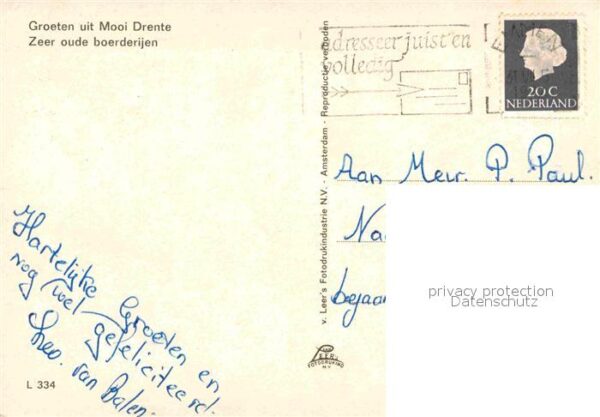 Groeten uit Mooi Drente
Zeer oude boerderijen
Adresseer juist en
volledig
20 C
NEDERLAND
v. Leer's Fotodrukindustrie N.V. - Amsterdam - Reproductie verboden
Aan Mevr. P. Paul.
Na
bejaar
privacy protection
Datenschutz
Hartelijke Groeten en
nog wel gefeliciteerd.
Theo. van Balen.
LEER'S
FOTODRUKIND
N.V.
L 334